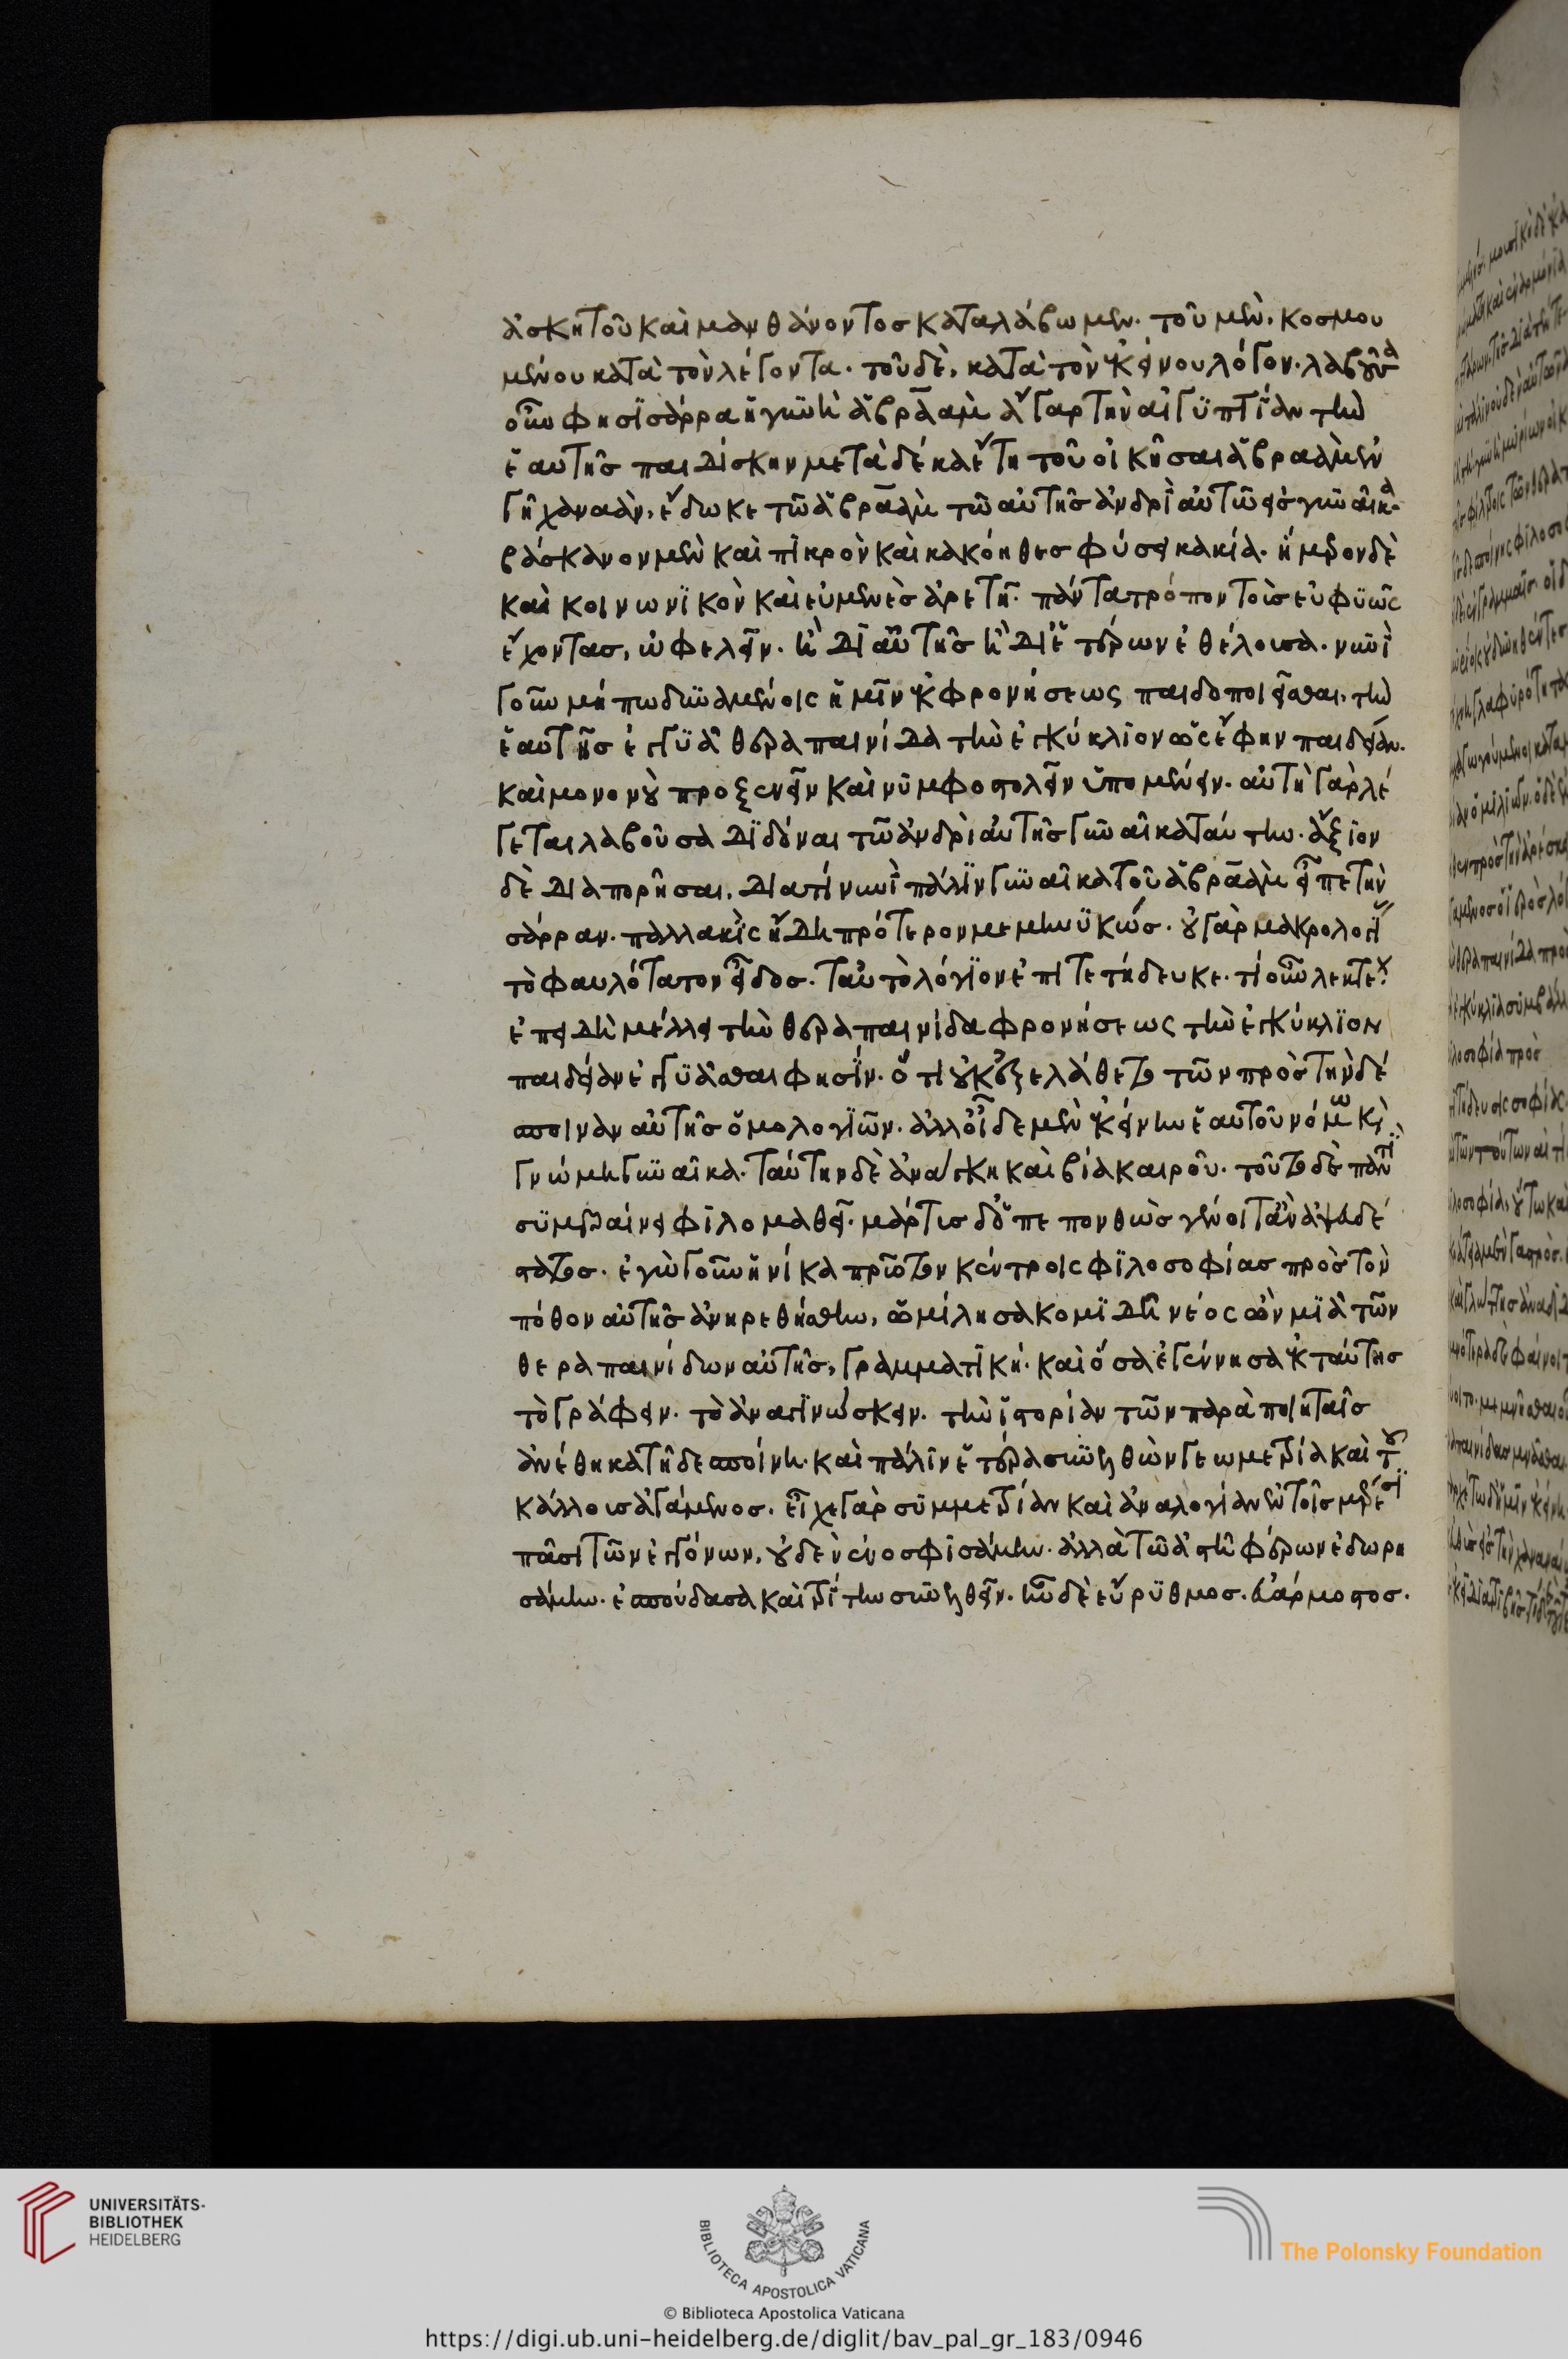 ἀσκητοῦ καὶ μανθάνοντος καταλάβωμεν. τοῦ μὲν, κοσμου
μένου κατὰ τὸν λέγοντα. τοῦ δὲ, κατὰ τὸν ἐκείνου λόγον. λαβοῦσα
οὖν φησὶ σάρρα ἡ γυνὴ ἀβραὰμ ἄγαρ τὴν αἰγυπτίαν τὴν
ἑαυτῆς παιδίσκην μετὰ δέκα ἔτη τοῦ οἰκῆσαι ἀβραὰμ ἐν
γῆ χαναὰν, ἔδωκε τῶ ἀβραὰμ τῶ αὐτῆς ἀνδρὶ αὐτῶ εἰς γυναῖκα.
βάσκανον μὲν καὶ πικρὸν καὶ κακόηθεσ φύσει κακία. ἥμερον δὲ
καὶ κοινωνικὸν καὶ εὐμενὲσ ἀρετή. πάντα τρόπον τοῖσ εὐφυῶς
ἔχοντασ, ὠφελεῖν. ἢ δι αὐτῆς ἢ δι ἑτέρων ἐθέλουσα. νυνὶ
γοῦν μήπω δυναμένοις ἡμῖν ἐκ φρονήσεως παιδοποιεῖσθαι, τὴν
ἑαυτῆς ἐγγυᾶ θεραπαινίδα τὴν ἐγκύκλιον ὡς ἔφην παιδείαν.
καὶ μονονοὺ προξενεῖν καὶ νυμφοστολεῖν ὑπομένειν. αὐτὴ γὰρ λέ
γεται λαβοῦσα διδόναι τῶ ἀνδρὶ αὐτῆς γυναῖκα ταύτην. ἄξιον
δὲ διαπορῆσαι, διατί νυνὶ πάλιν γυναῖκα τοῦ ἀβραὰμ εἶπε τὴν
σάρραν. πολλακὶς ἤδη πρότερον μεμηνυκώς. οὐ γὰρ μακρολογεῖ
τὸ φαυλότατον εἶδος. ταυτολόγιον ἐπιτετήδευκε. τί οὖν λεκτέον;
ἐπειδὴ μέλλει τὴν θεραπαινίδα φρονήσεως τὴν ἐγκύκλιον
παιδείαν ἐγγυᾶσθαι φησὶν. ὅτι οὐκ ἐξελάθετο τῶν πρὸς τὴν δέ
σποιναν αὐτῆς ὁμολογιῶν. ἀλλ οἶδε μὲν ἐκείνην ἑαυτοῦ νόμω κὶ
γνώμη γυναῖκα. ταύτην δὲ ἀνάγκη καὶ βία καιροῦ. τοῦτο δὲ παντὶ
συμβαίνει φιλομαθεῖ. μάρτις δ ὁ πεπονθὼς γένοιτ ἂν ἀψευδέ
στατος. ἐγὼ γοῦν ἡνίκα πρῶτον κέντροις φιλοσοφίας πρὸς τὸν
πόθον αὐτῆς ἀνηρεθήσθην, ὡμίλησα κομιδῆ νέος ὢν μιᾶ τῶν
θεραπαινίδων αὐτῆς, γραμματικῆ. καὶ ὅσα ἐγέννησα ἐκ ταύτης
τὸ γράφειν. τὸ ἀναγινώσκειν. τὴν ἱστορίαν τῶν παρὰ ποιηταῖς
ἀνέθηκα τῆ δεσποίνη. καὶ πάλιν ἑτέρα συνελθὼν γεωμετρία καὶ τοῦ
κάλλους ἀγάμενος. εἶχε γὰρ συμμετρίαν καὶ ἀναλογίαν ἐν τοῖς μέρεσι
πᾶσι τῶν ἐγγόνων, οὐδὲν ἐνοσφισάμην. ἀλλὰ τῶ ἀστῆ φέρων ἐδωρη
σάμην. ἐσπούδασα καὶ τρίτην συνελθεῖν. ἦν δὲ εὔρυθμος. εὐάρμοστος.
UNIVERSITÄTS-
BIBLIOTHEK
HEIDELBERG
BIBLIOTECA APOSTOLICA VATICANA
The Polonsky Foundation
© Biblioteca Apostolica Vaticana
https://digi.ub.uni-heidelberg.de/diglit/bav_pal_gr_183/0946